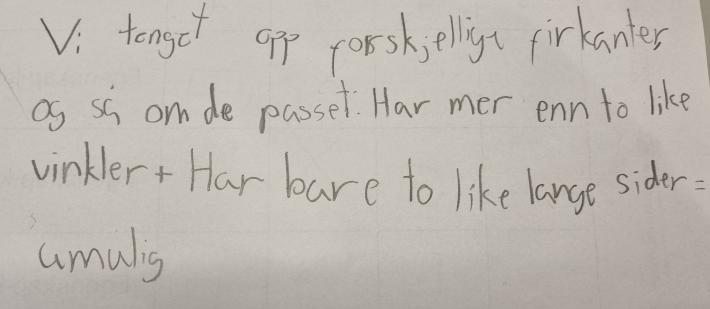 Vi tenget opp forskjellige firkanter
og så om de passet. Har mer enn to like
vinkler + Har bare to like lange sider =
umulig